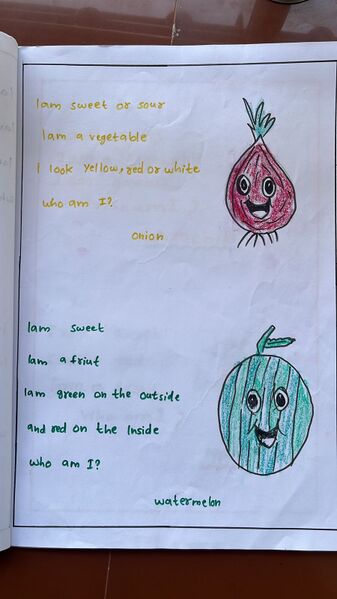 Iam sweet or sour
Iam a vegetable
I look yellow, red or white
who am I?
onion
Iam sweet
Iam a friut
Iam green on the outside
and red on the Inside
who am I?
watermelon